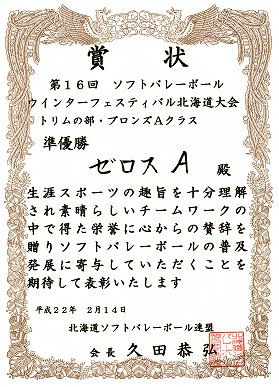 賞状
第16回 ソフトバレーボール
ウインターフェスティバル北海道大会
トリムの部・ブロンズAクラス
準優勝
ゼロスA 殿
生涯スポーツの趣旨を十分理解
され素晴らしいチームワークの
中で得た栄誉に心からの賛辞を
贈りソフトバレーボールの普及
発展に寄与していただくことを
期待して表彰いたします
平成22年 2月14日
北海道ソフトバレーボール連盟
会長 久田恭弘